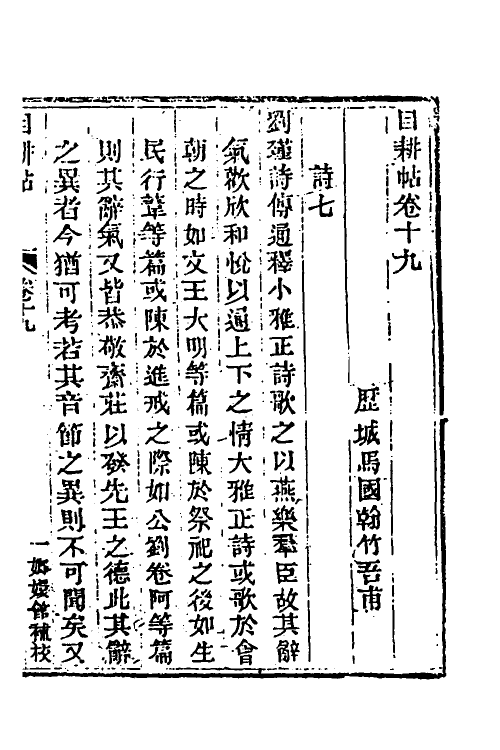 目耕帖卷十九
歷城馬國翰竹吾甫
詩七
劉瑾詩傳通釋小雅正詩歌之以燕樂羣臣故其辭
氣歡欣和悅以通上下之情大雅正詩或歌於會
朝之時如文王大明等篇或陳於祭祀之後如生
民行葦等篇或陳於進戒之際如公劉卷阿等篇
則其辭氣又皆恭敬齋莊以發先王之德此其辭
之異者今猶可考若其音節之異則不可聞矣又
目耕帖 卷十九 一 嫏嬛館補校